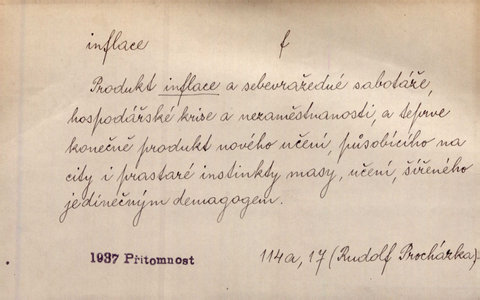 inflace f
Produkt inflace a sebevražedné sabotáže,
hospodářské krise a nezaměstnanosti, a teprve
konečně produkt nového učení, působícího na
city i prastaré instinkty masy, učení, šířeného
jedinečným demagogem.
1937 Přítomnost 114a, 17 (Rudolf Procházka)